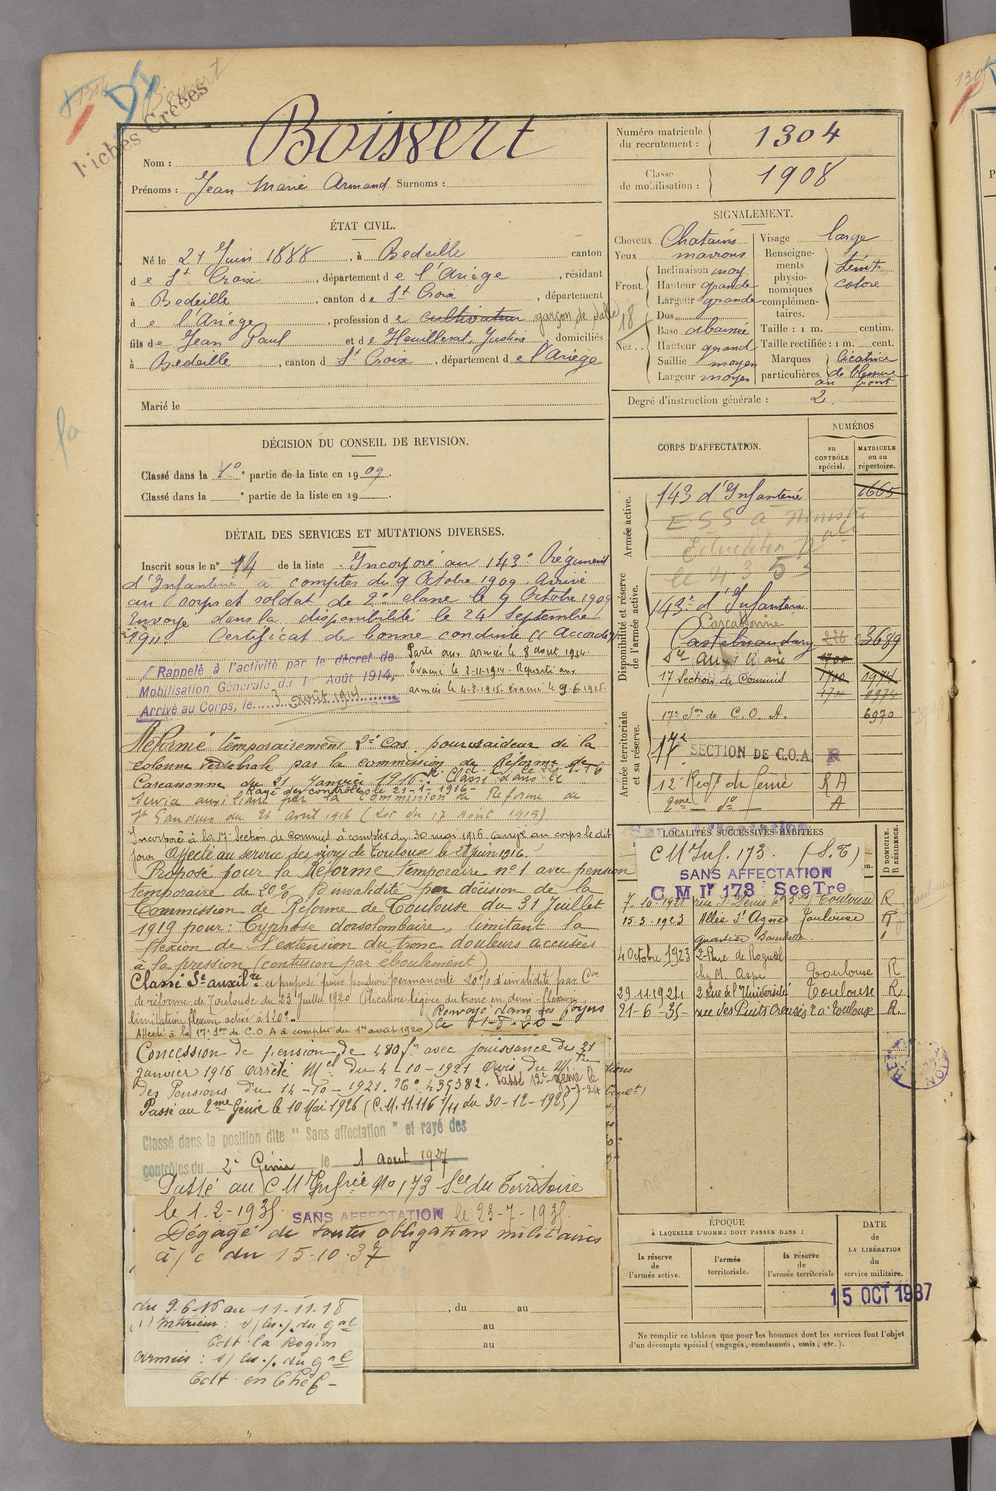 Fiches Créées
Nom : Boissert
Prénoms : Jean Marie Armand Surnoms :
Numéro matricule du recrutement : 1304
Classe de mobilisation : 1908
ÉTAT CIVIL.
Né le 21 Juin 1888, à Bedeille canton
de St Croix, département de l'Ariège, résidant
à Bedeille, canton de St Croix, département
de l'Ariège, profession de cultivateur garçon de salle
fils de Jean Paul et de Heuillerat, Justine, domiciliés
à Bedeille, canton de St Croix, département de l'Ariège
Marié le
SIGNALEMENT.
Cheveux Chatains
Yeux marrons
Front. Inclinaison moy
Hauteur grande
Largeur grande
Nez. Dos
Base abaissée
Hauteur grand
Saillie moyen
Largeur moyen
Visage large
Renseignements physionomiques complémentaires. teint coloré
Taille : 1 m. centim.
Taille rectifiée : 1 m. cent.
Marques particulières. Cicatrice de blessure au front
Degré d'instruction générale : 2
DÉCISION DU CONSEIL DE REVISION.
Classé dans la 1e partie de la liste en 1909
Classé dans la partie de la liste en 19
DÉTAIL DES SERVICES ET MUTATIONS DIVERSES.
Inscrit sous le n° 14 de la liste. Incorporé au 143e Régiment
d'Infanterie à compter du 9 Octobre 1909. Arrivé
au corps et soldat de 2e classe le 9 Octobre 1909
Envoyé dans la disponibilité le 24 Septembre
1911 Certificat de bonne conduite "Accordé"
Rappelé à l'activité par le décret de
Mobilisation Générale du 1er Août 1914,
Arrivé au Corps, le 3 août 1914
Parti aux armées le 8 août 1914.
Évacué le 2-11-1914. Reparti aux
armées le 4-2-1915. Évacué le 9-6-1915.
Réformé temporairement 2e Cas pour raideur de la
colonne vertébrale par la commission de Réforme de
Carcassonne du 21 Janvier 1916. Classé dans le
Rayé des contrôles le 21-1-1916
Service auxiliaire par la Commission de Réforme de
St Gaudens du 26 avril 1916 (Loi du 17 Août 1915)
Incorporé à la 17e Section de Commis à compter du 30 mai 1916. Arrivé au corps le dit
jour. Affecté au service des vivres de Toulouse le 28 juin 1916.
Proposé pour la Réforme temporaire n° 1 avec pension
temporaire de 20% d'invalidité par décision de la
Commission de Réforme de Toulouse du 31 Juillet
1919 pour : Cyphose dorsolombaire, limitant la
flexion de l'extension du tronc douleurs accusées
à la pression (contusion par éboulement)
Classé Sce auxilre et proposé pour pension permanente 20% d'invalidité par Con
de réforme de Toulouse du 23 Juillet 1920
limitation flexion active à 120°
Renvoyé dans ses foyers
Affecté à la 17e Son de C.O.A à compter du 1er août 1920
Concession de pension de 480 f avec jouissance du 21
janvier 1916 arrêté Mel du 4-10-1921 avis du Mtre
des Pensions du 14-10-1921. N° 435382. Passé 12e génie le
Passé au 2me Génie le 10 Mai 1926 (C.M. 11.116 1/11 du 30-12-1925)
Classé dans la position dite "Sans affectation" et rayé des
contrôles du 2e Génie le 1 Août 1927
Passé au C M Infrie No 173 Sce du Territoire
le 1.2-1935. SANS AFFECTATION le 23-7-1935.
Dégagé de toutes obligations militaires
à/c du 15.10.37
du 9.6.15 au 11-11-18
(1) Intérieur :
Cdt la Région
Armées :
Cdt en Chef
, du au
au
au
CORPS D'AFFECTATION.
NUMÉROS
au CONTRÔLE spécial.
MATRICULE ou au répertoire.
Armée active.
143 d'Infanterie 1665
ESS à Ministre
Education Nale
le 4 3 53
Disponibilité et réserve de l'armée active.
143e d'Infanterie
Carcassonne
Castelnaudary 3689
17 Section de Commis
Armée territoriale et sa réserve.
17e Son de C. O. A. 6970
17e SECTION DE C.O.A. R
12e Regt de Génie R A
2me do A
LOCALITÉS SUCCESSIVES HABITÉES
D. DOMICILE. R. RÉSIDENCE.
C M Inf. 173. (S.T)
SANS AFFECTATION
C M Ir 173 Sce Tre
Toulouse R
15-3-1923 Allée St Agne Toulouse
4 Octobre 1923 2 Rue de
Toulouse R
29.11.1924 2 Rue de l'Université Toulouse R.
21-6-35 rue des Puits Creusés 20 Toulouse R.
ÉPOQUE
À LAQUELLE L'HOMME DOIT PASSER DANS :
la réserve de l'armée active.
l'armée territoriale.
la réserve de l'armée territoriale
DATE de LA LIBÉRATION du service militaire.
15 OCT 1937
Ne remplir ce tableau que pour les hommes dont les services font l'objet
d'un décompte spécial (engagés, condamnés, omis, etc.).